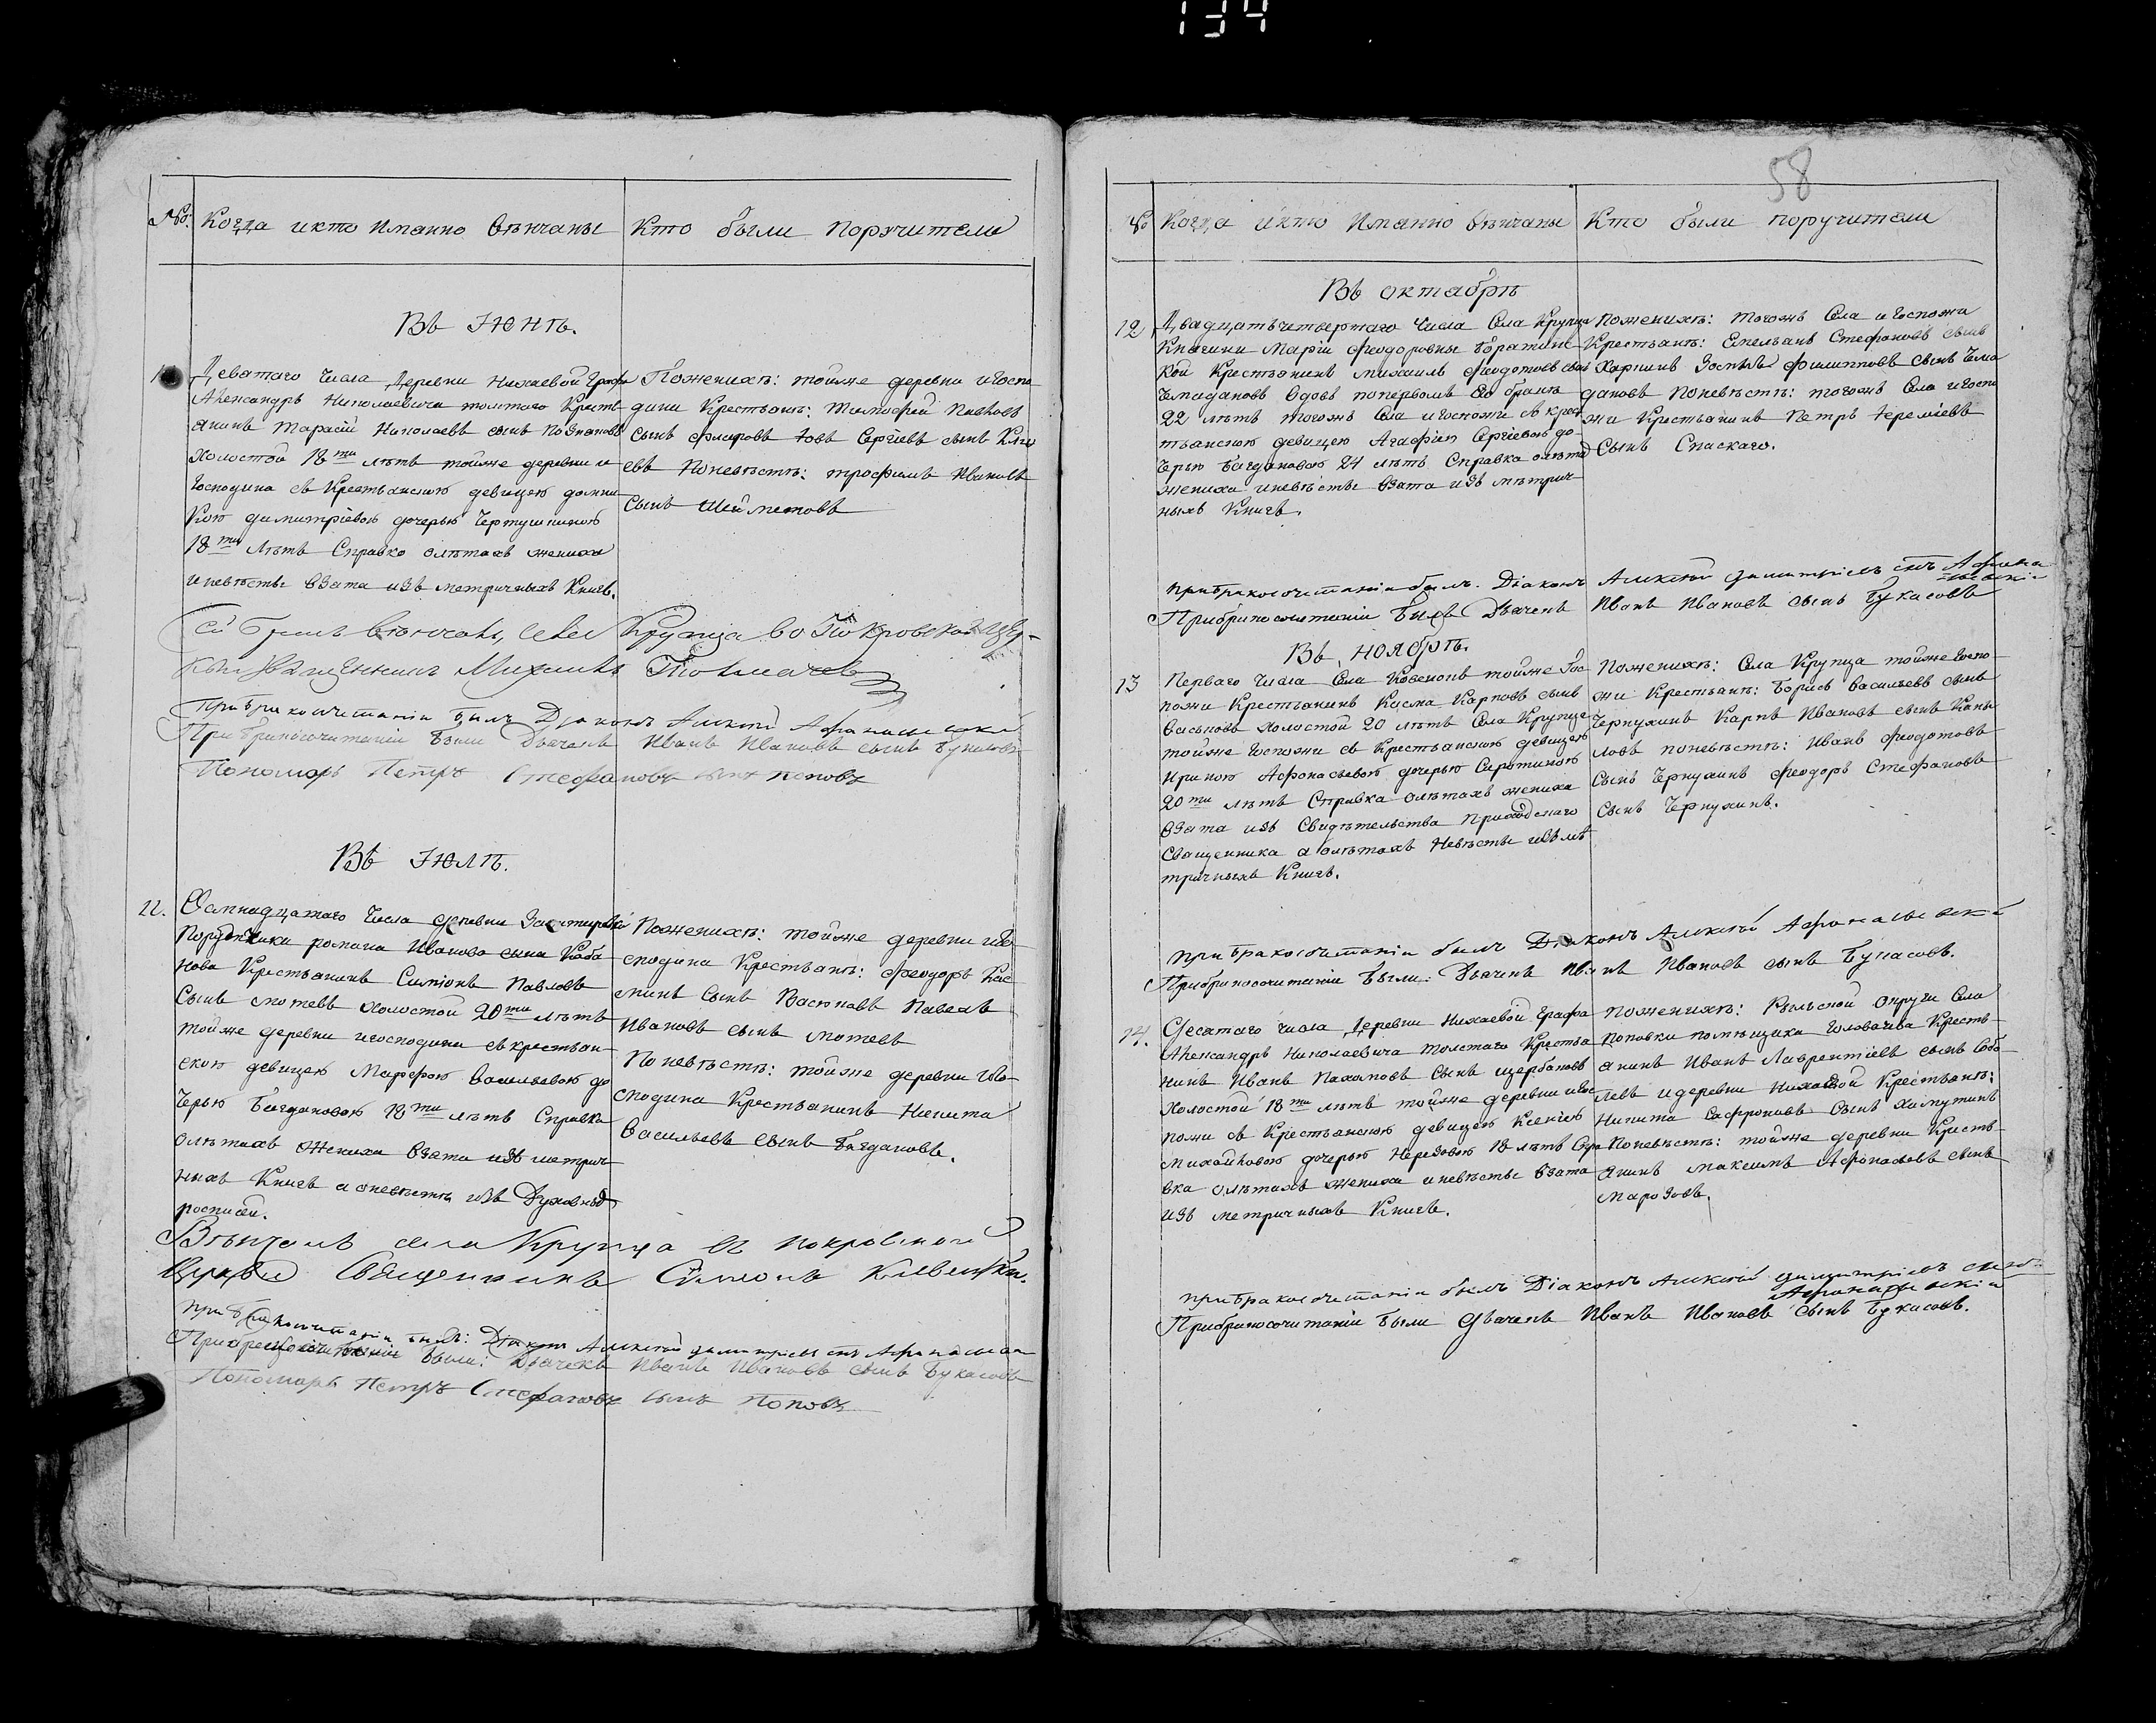 134
№: Когда икто Имянно Вѣнчаны
Кто были Поручители
Въ Июнѣ.
Деватаго Числа Деревни Нихаевой Графа
Александръ Николаевича толстаго Кресть-
янинъ Тарасій Николаевъ сынъ
Холостой 18ти лѣтъ тойже деревни и
Господина съ Крестьянскою девицею домни-
Кою димитріевою дочерью Чертушкиною
18ти Лѣтъ Справко олѣтахъ жениха
иневѣсты Взата изъ метричныхъ Книгъ.
Поженихѣ: тойже деревни игоспо-
дина Крестьянъ: Тимофей Павловъ
сынъ Іовъ Сергіевъ сынъ
евъ Поневѣстѣ: трофимъ Ивановъ
сынъ Шейметовъ
Сей бракъ вѣнчалъ, села Крупца во Покровской цер-
кви Священникъ Михаилъ Толмачевъ
при Бракосочетаніи былъ Діаконъ Алексѣй Афанасьевскій
Прибракосочитаніи Были Дьячекъ Иванъ Ивановъ сынъ Букасовъ
Пономарь Петръ Стефановъ сынъ поповъ
Въ Июлѣ.
11. Осмнадцатаго Числа деревни
Порутчика романа Иванова сына Каба-
нова Крестьянинъ Симіонъ Павловъ
Сынъ мотевъ Холостой 20ти лѣтъ
тойже деревни игосподина съкрестьян-
скою девицею Марфою Васильевою до
Черью Багдановою 18ти лѣтъ Справка
олѣтахъ Жениха Взята изъ метрич-
ныхъ Книгъ а оневѣстѣ изъ Духовной
росписи.
Поженихѣ: тойже деревни иго-
сподина Крестьянъ: Феодоръ Кос-
минъ Сынъ Васюковъ Павелъ
Ивановъ сынъ мотевъ
Поневѣстѣ: тойже деревни иго-
сподина Крестьянинъ Никита
Васильевъ Сынъ Багдановъ.
Вѣнчалъ села Крупца въ покровской
Церкви Священникъ Симіонъ
при Бракосочитаніи былъ: Діаконъ Алексѣй димитріевъ сынъ
Прибракосочитаніи Были: Дьячекъ Иванъ Ивановъ сынъ Букасовъ
Пономарь Петръ Стефановъ сынъ поповъ
58
№ Когда икто Имянно Вѣнчаны
Кто были поручители
Въ октабрѣ
12. Двадцатьчетвертаго Числа Села Крупца
Княгини Маріи Феодоровны Баратинс-
Кой Крестьянинъ михаилъ Феодотовъ сынъ
Чемадановъ Вдовъ поперьвомъ Его бракѣ
22 лѣтъ тогожъ Села игоспожи съ крес-
тьянскою девицею Агафіею Сергіевою до-
Черью Багдановою 24 лѣтъ Справка олѣтахъ
жениха иневѣсты взята изъ метрич-
ныхъ Книгъ.
Поженихѣ: тогожъ Села и госпожи
Крестьянъ: Емельянъ Стефановъ сынъ
Харкинъ Филипповъ сынъ Чема
дановъ Поневѣстѣ: тогожъ Села игоспо
жи Крестьянинъ Петръ Іереміевъ
Сынъ Спаскаго.
прибракосочетаніи былъ. Діаконъ Алексѣй димитріевъ снъ Афана
сьевскій
Прибракосочитаніи Былъ Дьячекъ Иванъ Ивановъ сынъ Букасовъ
Въ ноябрѣ.
13 Перваго Числа Села тойже Гос-
пожи Крестьянинъ Кузма Карповъ сынъ
Васьковъ Холостой 20 лѣтъ Села Крупца
тойже Госпожи съ Крестьянскою девицею
Ириною Афонасьевою дочерью Сиротиною
20ти лѣтъ Справка олѣтахъ жениха
Взята изъ Свидѣтельства Приходскаго
Священника а олѣтахъ Невѣсты изъмѣ
тричныхъ Книгъ.
Поженихѣ: Села Крупца тойже Госпо-
жи Крестьянъ: Борисъ Васильевъ сынъ
Чернухинъ Карпъ Ивановъ сынъ
ловъ поневѣстѣ: Иванъ Феодотовъ
Сынъ Чернухинъ Феодоръ Стефановъ
Сынъ Чернухинъ.
прибракосочетаніи былъ Діаконъ Алексѣй Афонасьевскій
Прибракосочитаніи Были: Дьячекъ Иванъ Ивановъ сынъ Букасовъ.
14. Десятаго числа Деревни Нихаевой Графа
Александръ Николаевича толстаго Крестья-
нинъ Иванъ Пахомовъ Сынъ щербаковъ
Холостой 18ти лѣтъ тойже деревни игос
пожи съ Крестьянскою девицею Ксеніею
Михайловою дочерью 18 лѣтъ Спра
вка олѣтахъ жениха иневѣсты Взята
изъ метричныхъ Книгъ.
поженихѣ: Рыльской Округи Села
поповки помѣщика Головачева Кресть-
янинъ Иванъ Лаврентіевъ сынъ Собо
левъ идеревни Нихаевой Крестьянъ:
Никита Сафроновъ Сынъ Халпутинъ
Поневѣстѣ: тойже деревни Кресть-
янинъ максимъ Афонасьевъ сынъ
марозовъ.
прибракосочетаніи былъ Діаконъ Алексѣй димитріевъ сынъ
Афонасьевскій
Прибракосочитаніи Были дьячекъ Иванъ Ивановъ Сынъ Букасовъ.